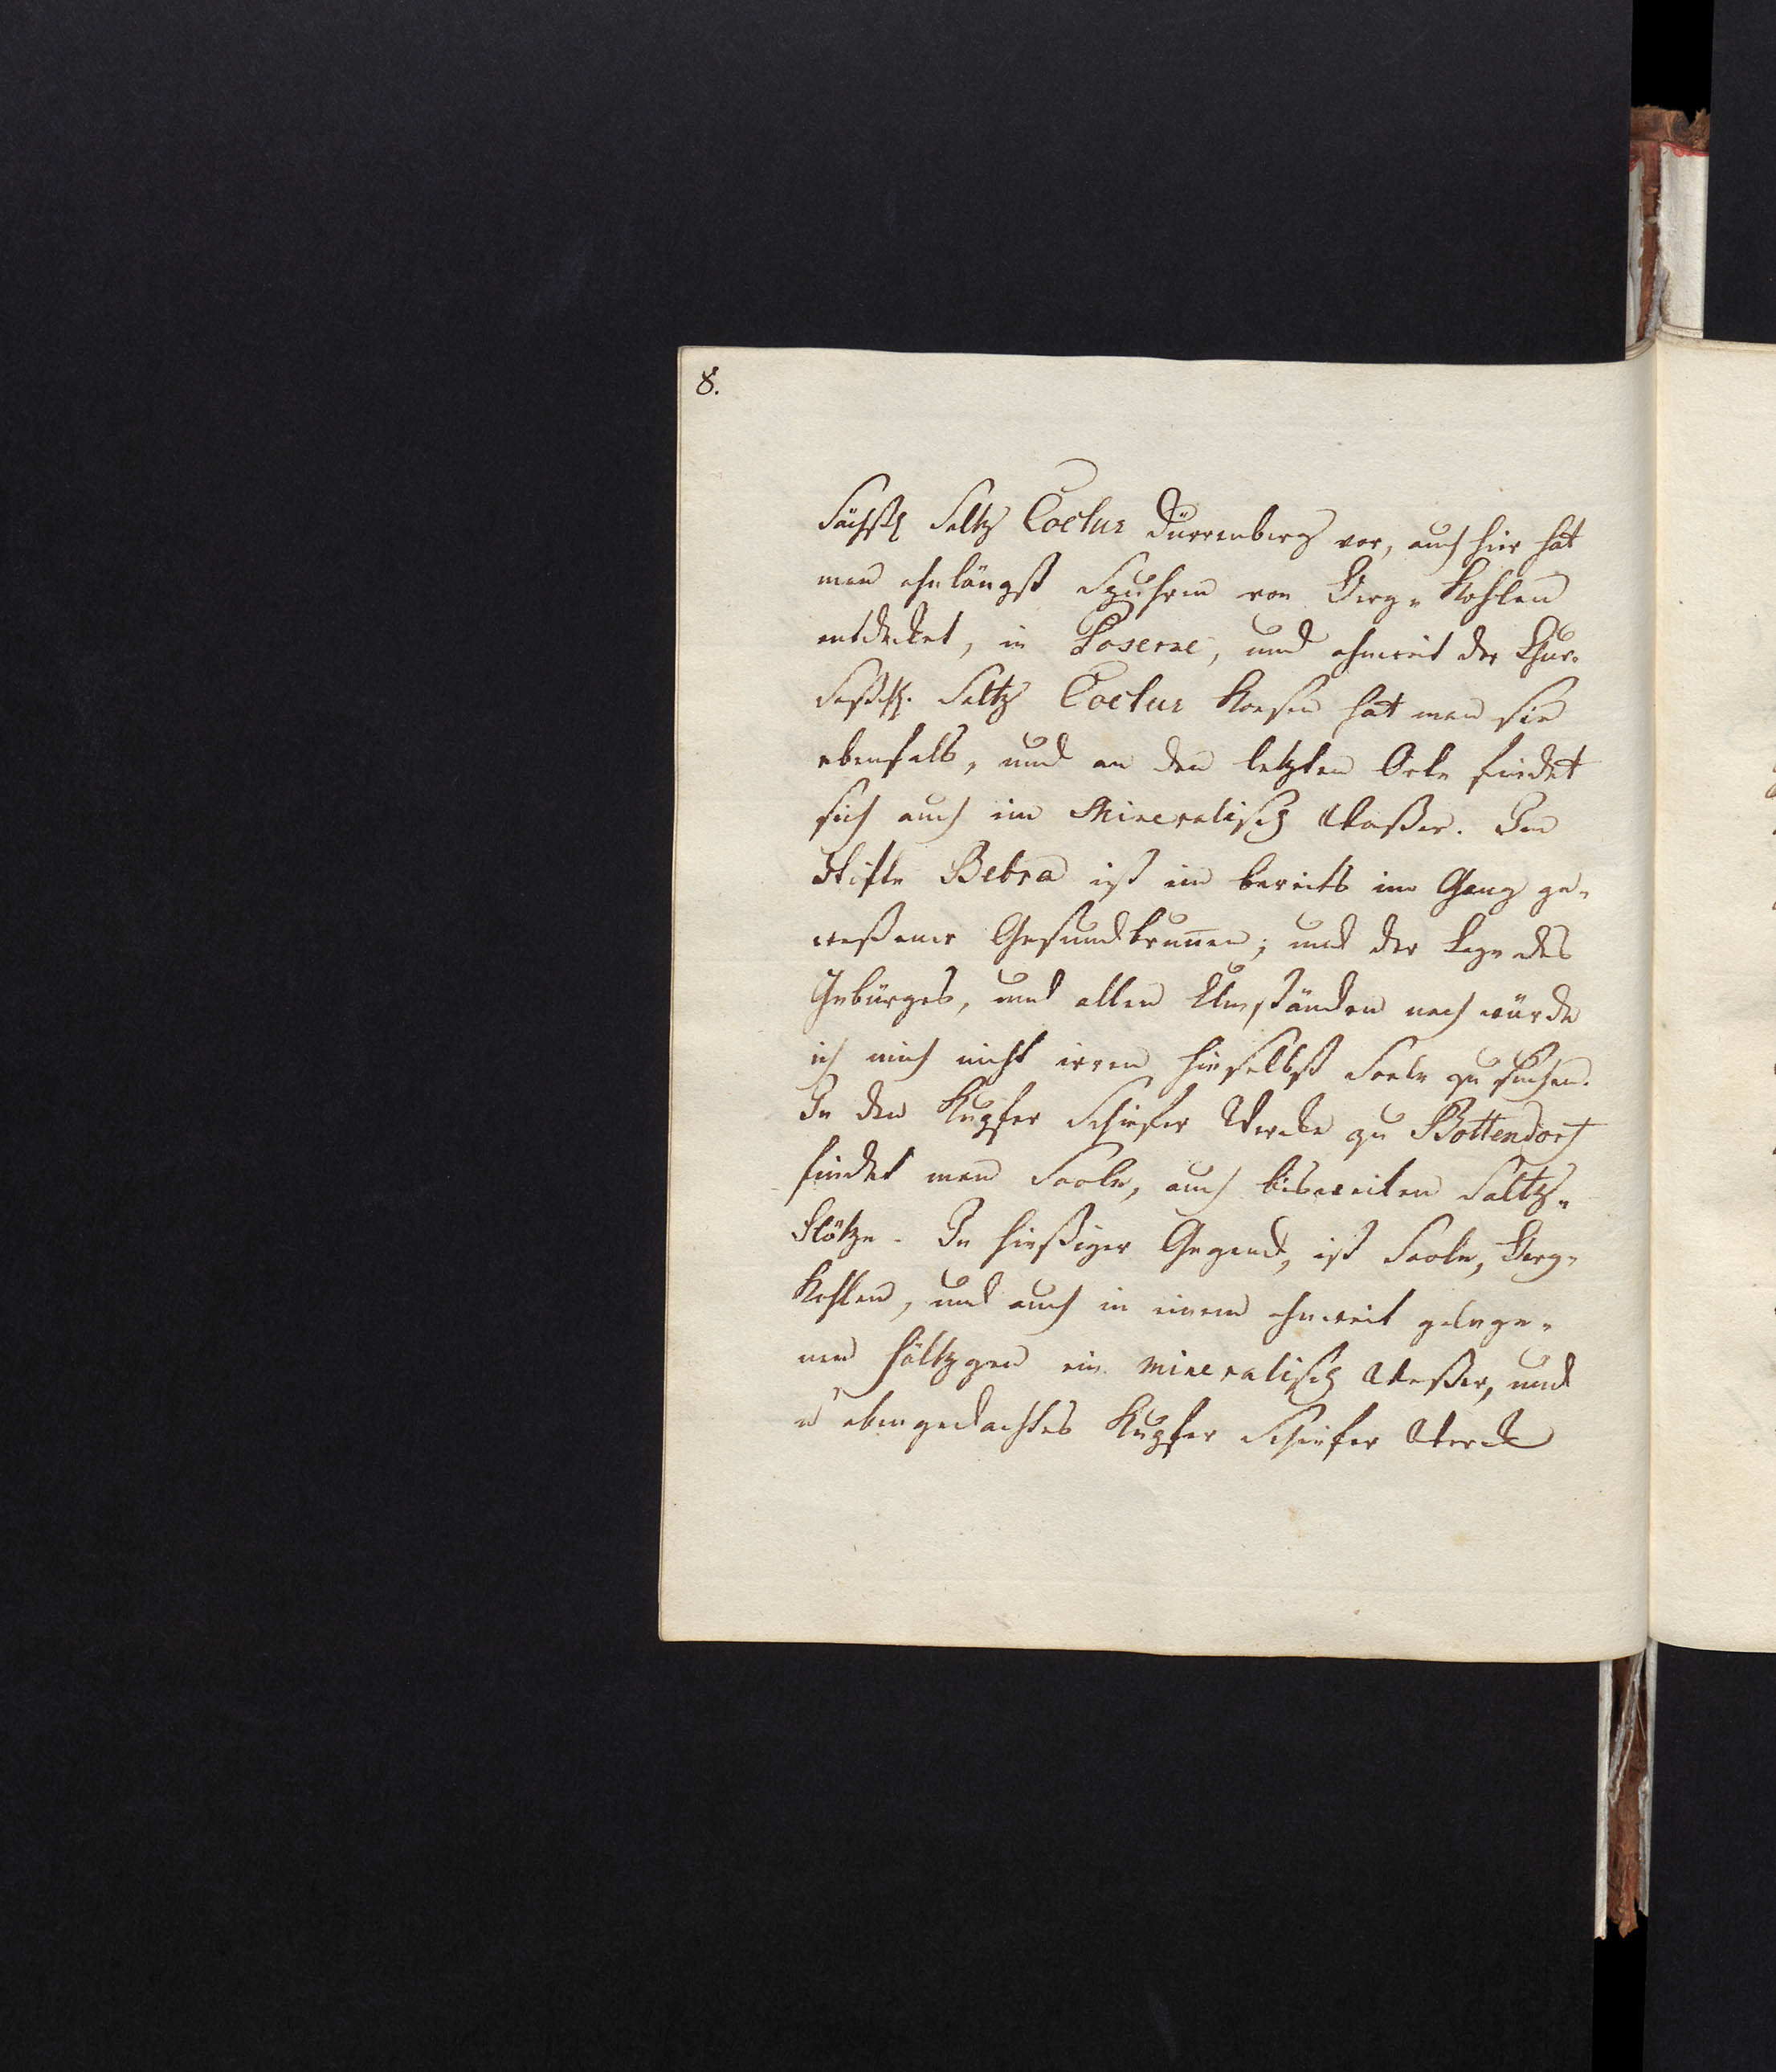 8.
Sächsisch Saltz Coctur Dürrenberg vor, auch hier hat
man ohnlängst Spuhren von Berg-Kohlen
entdecket, in Poserne, und ohnweit der Chur-
Sächsch. Saltz Coctur Koesen hat man sie
ebenfals, und an den letzten Orte findet
sich auch ein Mineralisch Waßer. Im
Stifte Bebra ist ein bereits im Gang ge-
weßener Gesundbrunnen; und der Lage des
Gebürges, und allen Umständen nach würde
ich mich nicht irren hieselbst Soole zu suchen.
In den Kupfer Schiefer Wercke zu Bottendorf
findet man Soole, auch bisweilen Saltz-
Flötze. In hießiger Gegend, ist Soole, Berg-
Kohlen, und auch in einem ohnweit gelege-
nen Höltzgen ein mineralisch Waßer, und
obengedachtes Kupfer Schiefer Werck